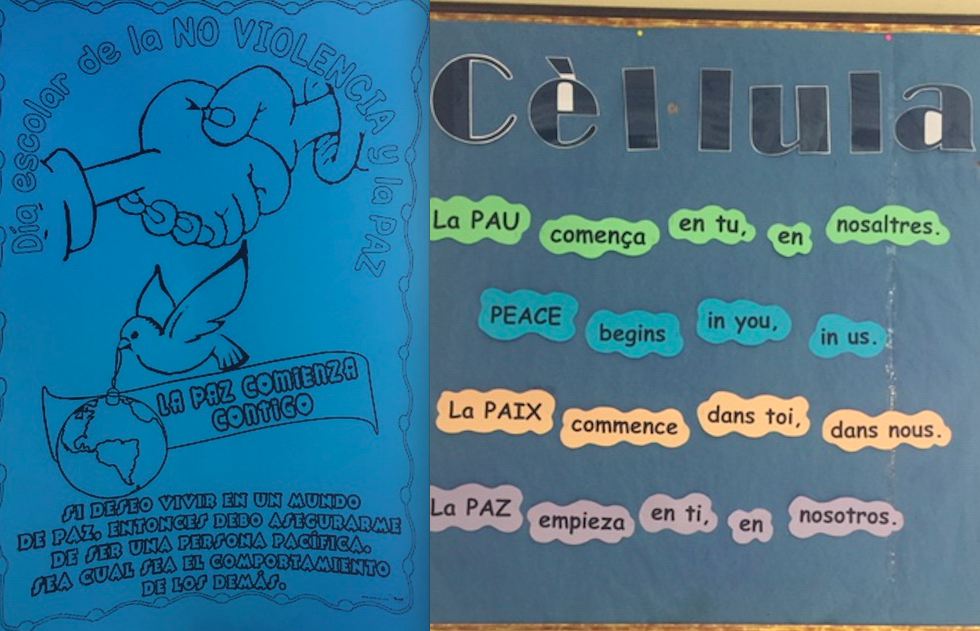 Día escolar de la NO VIOLENCIA y la PAZ
LA PAZ COMIENZA
CONTIGO
SI DESEO VIVIR EN UN MUNDO
DE PAZ, ENTONCES DEBO ASEGURARME
DE SER UNA PERSONA PACÍFICA.
SEA CUAL SEA EL COMPORTAMIENTO
DE LOS DEMÁS.
Cèl·lula
La PAU comença en tu, en nosaltres.
PEACE begins in you, in us.
La PAIX commence dans toi, dans nous.
La PAZ empieza en ti, en nosotros.